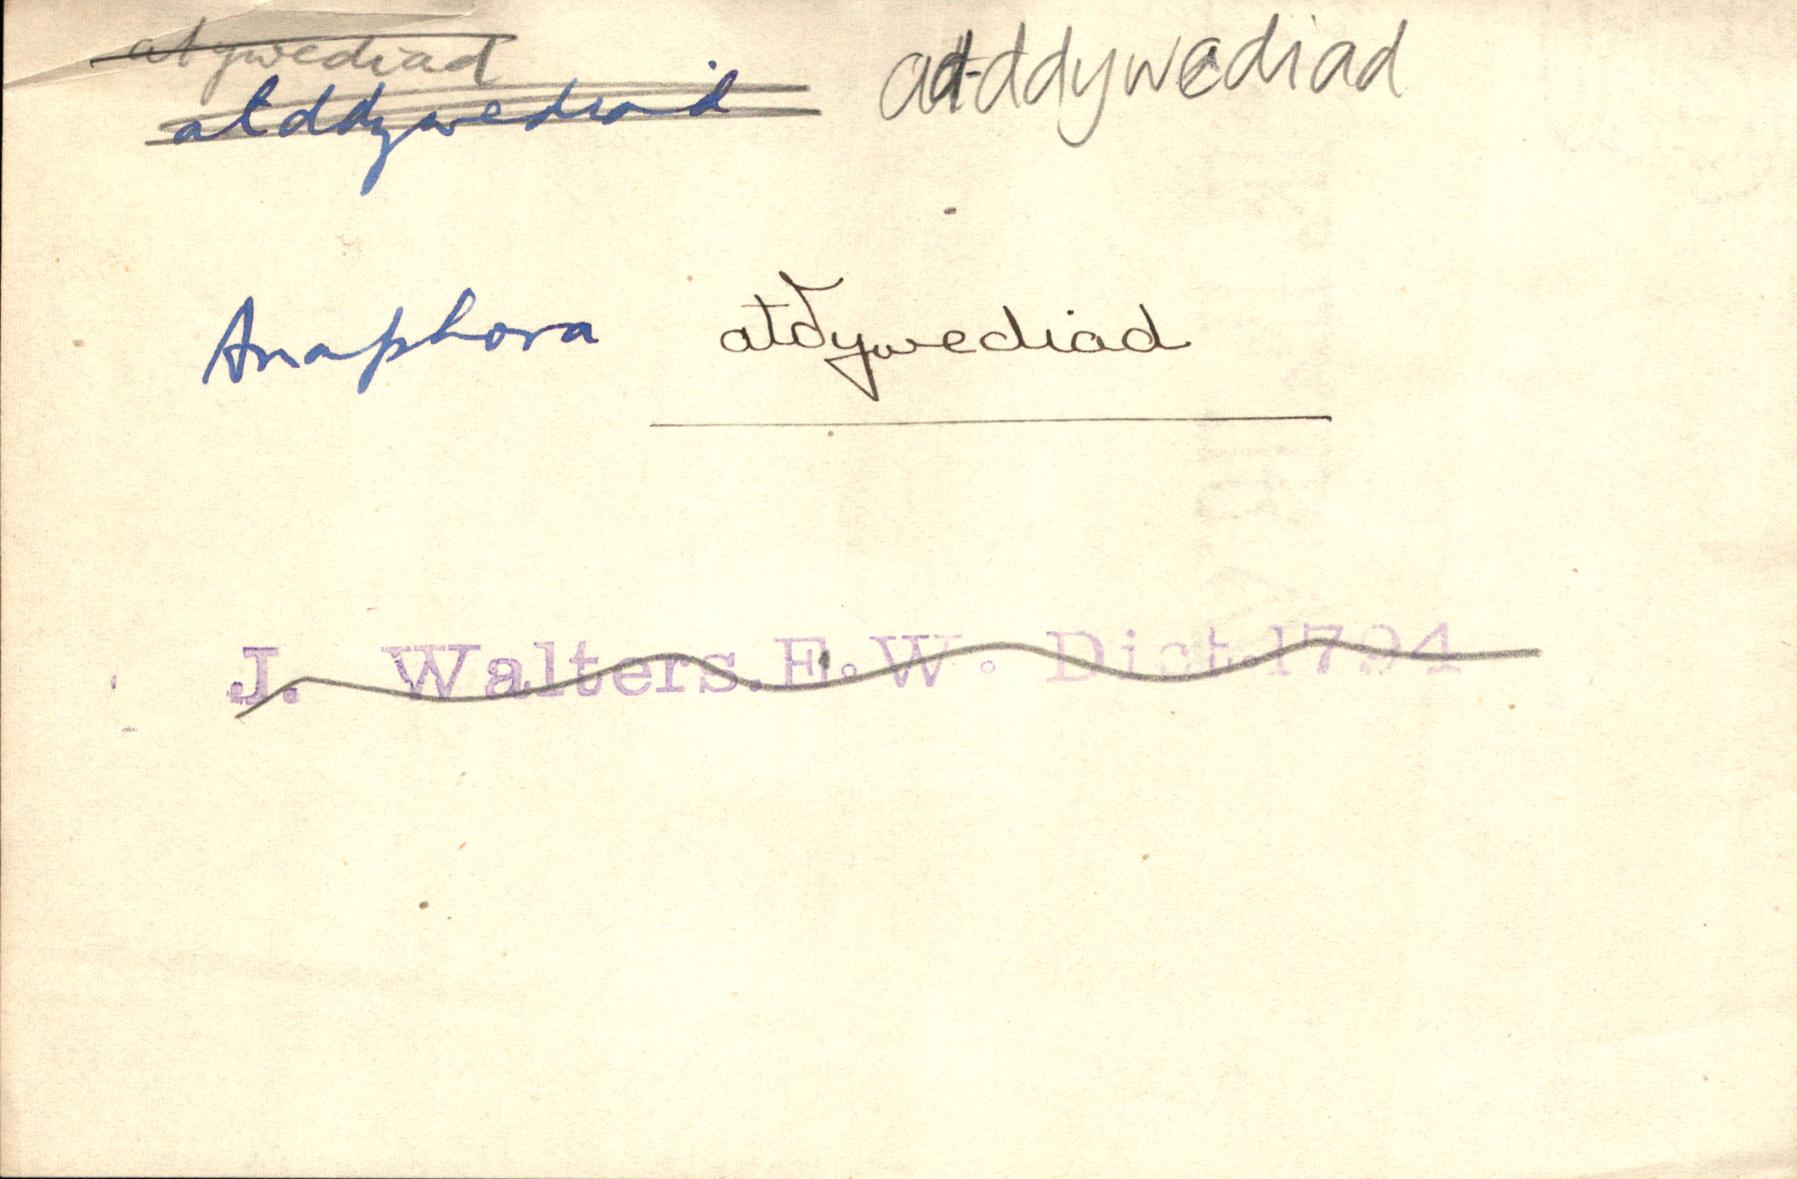 atywediad
atddywediad at-ddywediad
Anaphora atδywediad
J. Walters. E. W. Dict. 1794